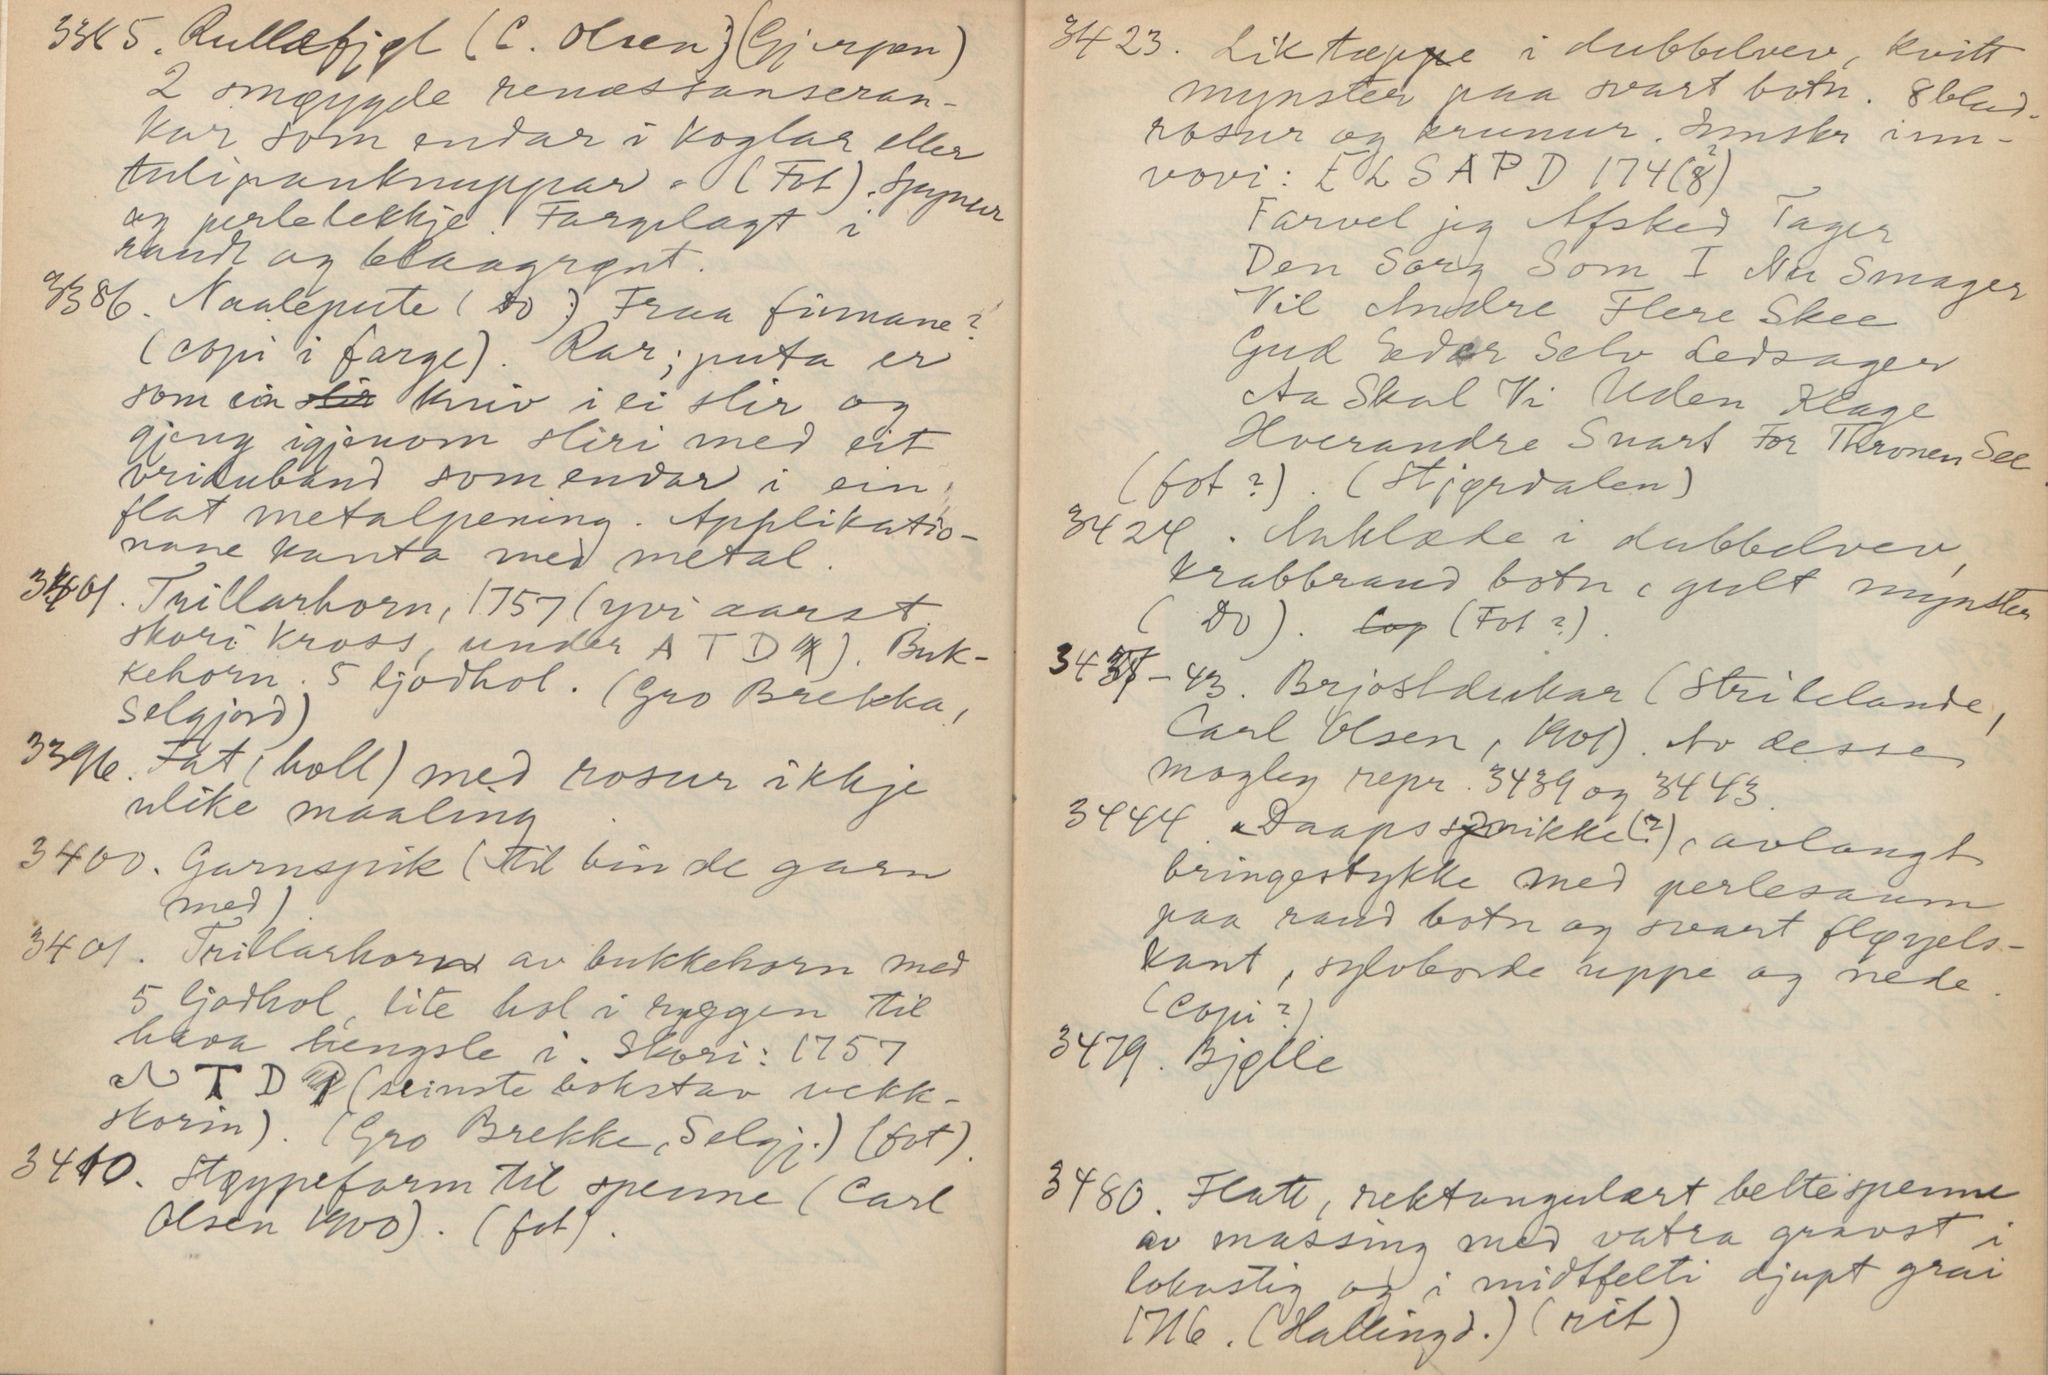 3385. Rullefjøl (C. Olsen;) (Gjerpen)
2 smøygde renæssanseran-
kar som endar i koglar eller
tulipanknuppar. (Fot). Spynur
og perlelekkje. Fargelagt i
raudt og blaagrønt.
3386. Naalepute (Do:) Fraa finnane?
(copi i farge). Rar; puta er
som ein slir kniv i ei slir og
gjeng igjenom sliri med eit
band som endar i ein
flat metalpening. Applikatio-
nane kanta med metal.
3401. Trillarhorn, 1757 (yvi aarst.
skori kross, under A T D). Buk-
kehorn. 5 ljodhol. (Gro Brekka,
Selgjord)
3396. Fat (holl) med rosur ikkje
ulike maaling.
3400. Garnspik (til binde garn
med)
3401. Trillarhorn av bukkehorn med
5 ljodhol, lite hol i ryggen til
hava hengsle i. Skori: 1757
N T D (seinste bokstav vekk-
skorin). (Gro Brekke, Selgj.) (fot).
3410. Støypeform til spenne (Carl
Olsen 1900). (fot).
3423. Liktæppe i dubbelvev, kvitt
mynster paa svart botn. 8blad-
rosur og krunur. Innskr inn-
vovi: E L S A P D 174(8?)
Farvel jeg Afsked Tager
Den Sorg Som I Nu Smager
Vil Andre Flere Skee
Gud Eder Selv Ledsager
Aa Skal Vi Uden Klage
Hverandre Snart For Thronen See
(fot?). (Stjørdalen)
3424. Aaklæde i dubbelvev,
krabbraud botn, gult mynster
(Do). Cop (Fot?).
34 - 43. Brjostdukar (Strilelande,
Carl Olsen, 1901). Av desse
mogleg repr. 3439 og 3443.
3444. Daaps (?), avlangt
bringestykke med perlesaum
paa raud botn og svart fløyels-
kant, sylvborde uppe og nede.
(Copi?)
3479. Bjølle
3480. Flatt, rektangulært beltespenne
av massing med vatra gravst i
lokustig og i midtfelti djupt grai
1716. (Hallingd.) (rit)